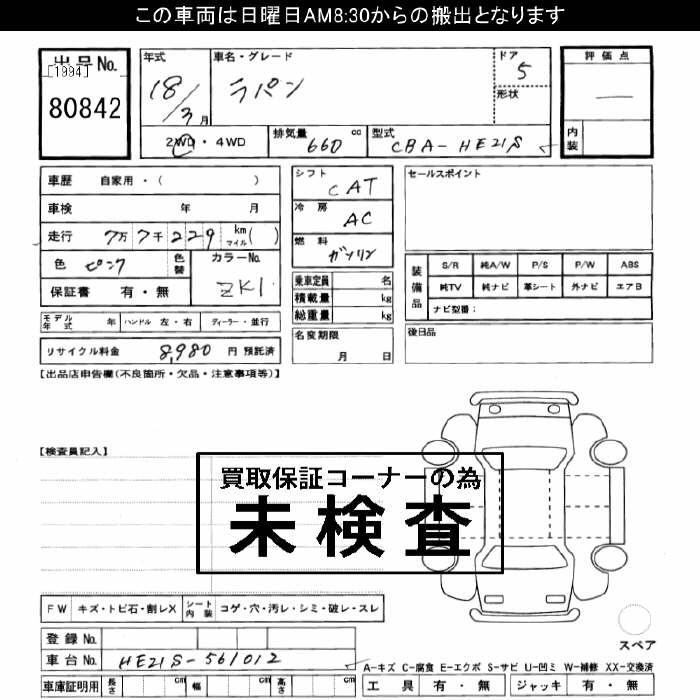 この車両は日曜日AM8:30からの搬出となります
出品No.
[1994]
80842
年式
18/3月
車名・グレード
ラパン
ドア
5
形状
2WD・4WD
排気量
660 cc
型式
CBA-HE21S
評価点
―
内装
車歴 自家用・( )
車検 年 月
走行 7万7千229 km マイル( )
色 ピンク
色替
カラーNo.
ZK1
保証書 有・無
シフト
CAT
冷房
AC
燃料
ガソリン
乗車定員 名
積載量 kg
総重量 kg
名変期限
月 日
セールスポイント
装備品
S/R 純A/W P/S P/W ABS
純TV 純ナビ 革シート 外ナビ エアB
ナビ型番:
後日品
モデル年式 年 ハンドル 左・右 ディーラー・並行
リサイクル料金 8,980 円 預託済
【出品店申告欄(不良箇所・欠品・注意事項等)】
【検査員記入】
買取保証コーナーの為
未検査
FW キズ・トビ石・割レX シート内装 コゲ・穴・汚レ・シミ・破レ・スレ
登録No.
車台No. HE21S-561012
車庫証明用 長さ cm 幅 cm 高さ cm
スペア
A-キズ C-腐食 E-エクボ S-サビ U-凹ミ W-補修 XX-交換済
工具 有・無 ジャッキ 有・無